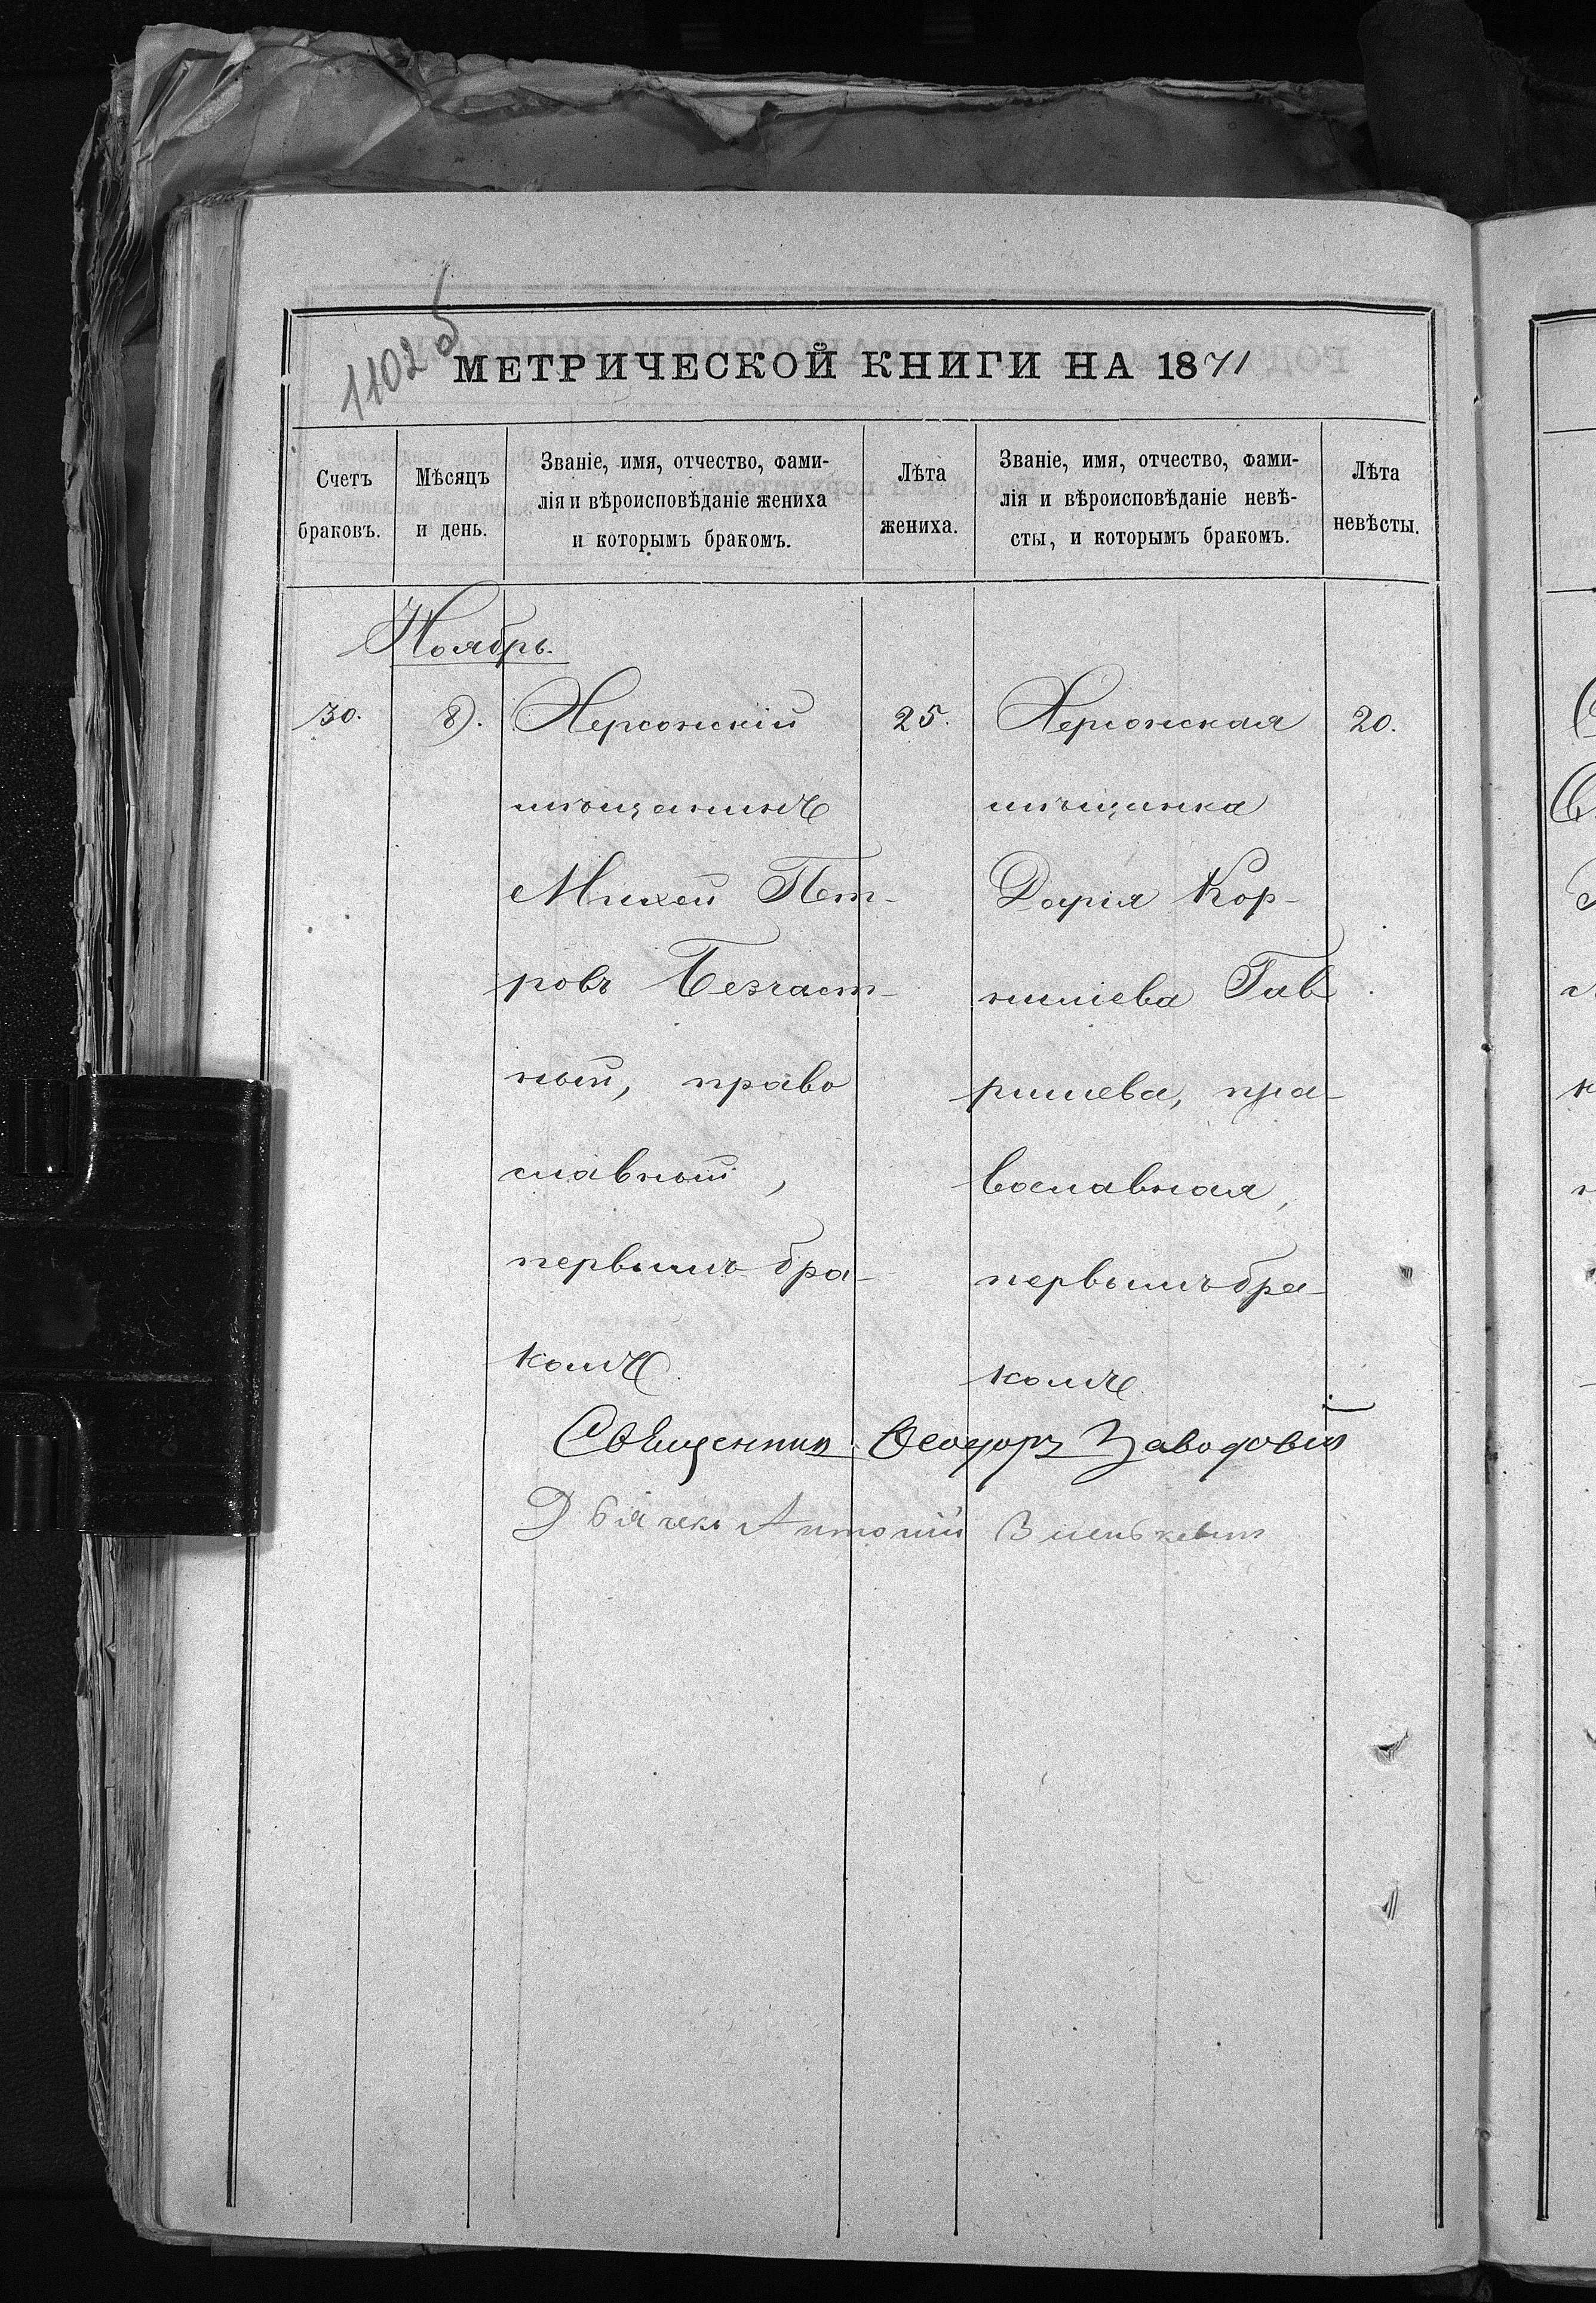 1102 об
МЕТРИЧЕСКОЙ КНИГИ НА 1871
Счетъ браковъ.
Мѣсяцъ и день.
Званіе, имя, отчество, фами-
лія и вѣроисповѣданіе жениха
и которымъ бракомъ.
Лѣта жениха.
Званіе, имя, отчество, фами-
лія и вѣроисповѣданіе невѣ-
сты, и которымъ бракомъ.
Лѣта невѣсты.
Ноябрь.
30. 8.
Херсонскій
мѣщанинъ
Михей Пет-
ровъ Безчаст-
ный, право
славный,
первымъ бра-
комъ.
25.
Херсонская
мѣщанка
Дарія Кор-
ниліева Гав
рилиева, пра-
вославная,
первымъ бра-
комъ
20.
Священникъ Ѳеодоръ Заводовскій
Дьячекъ Антоній